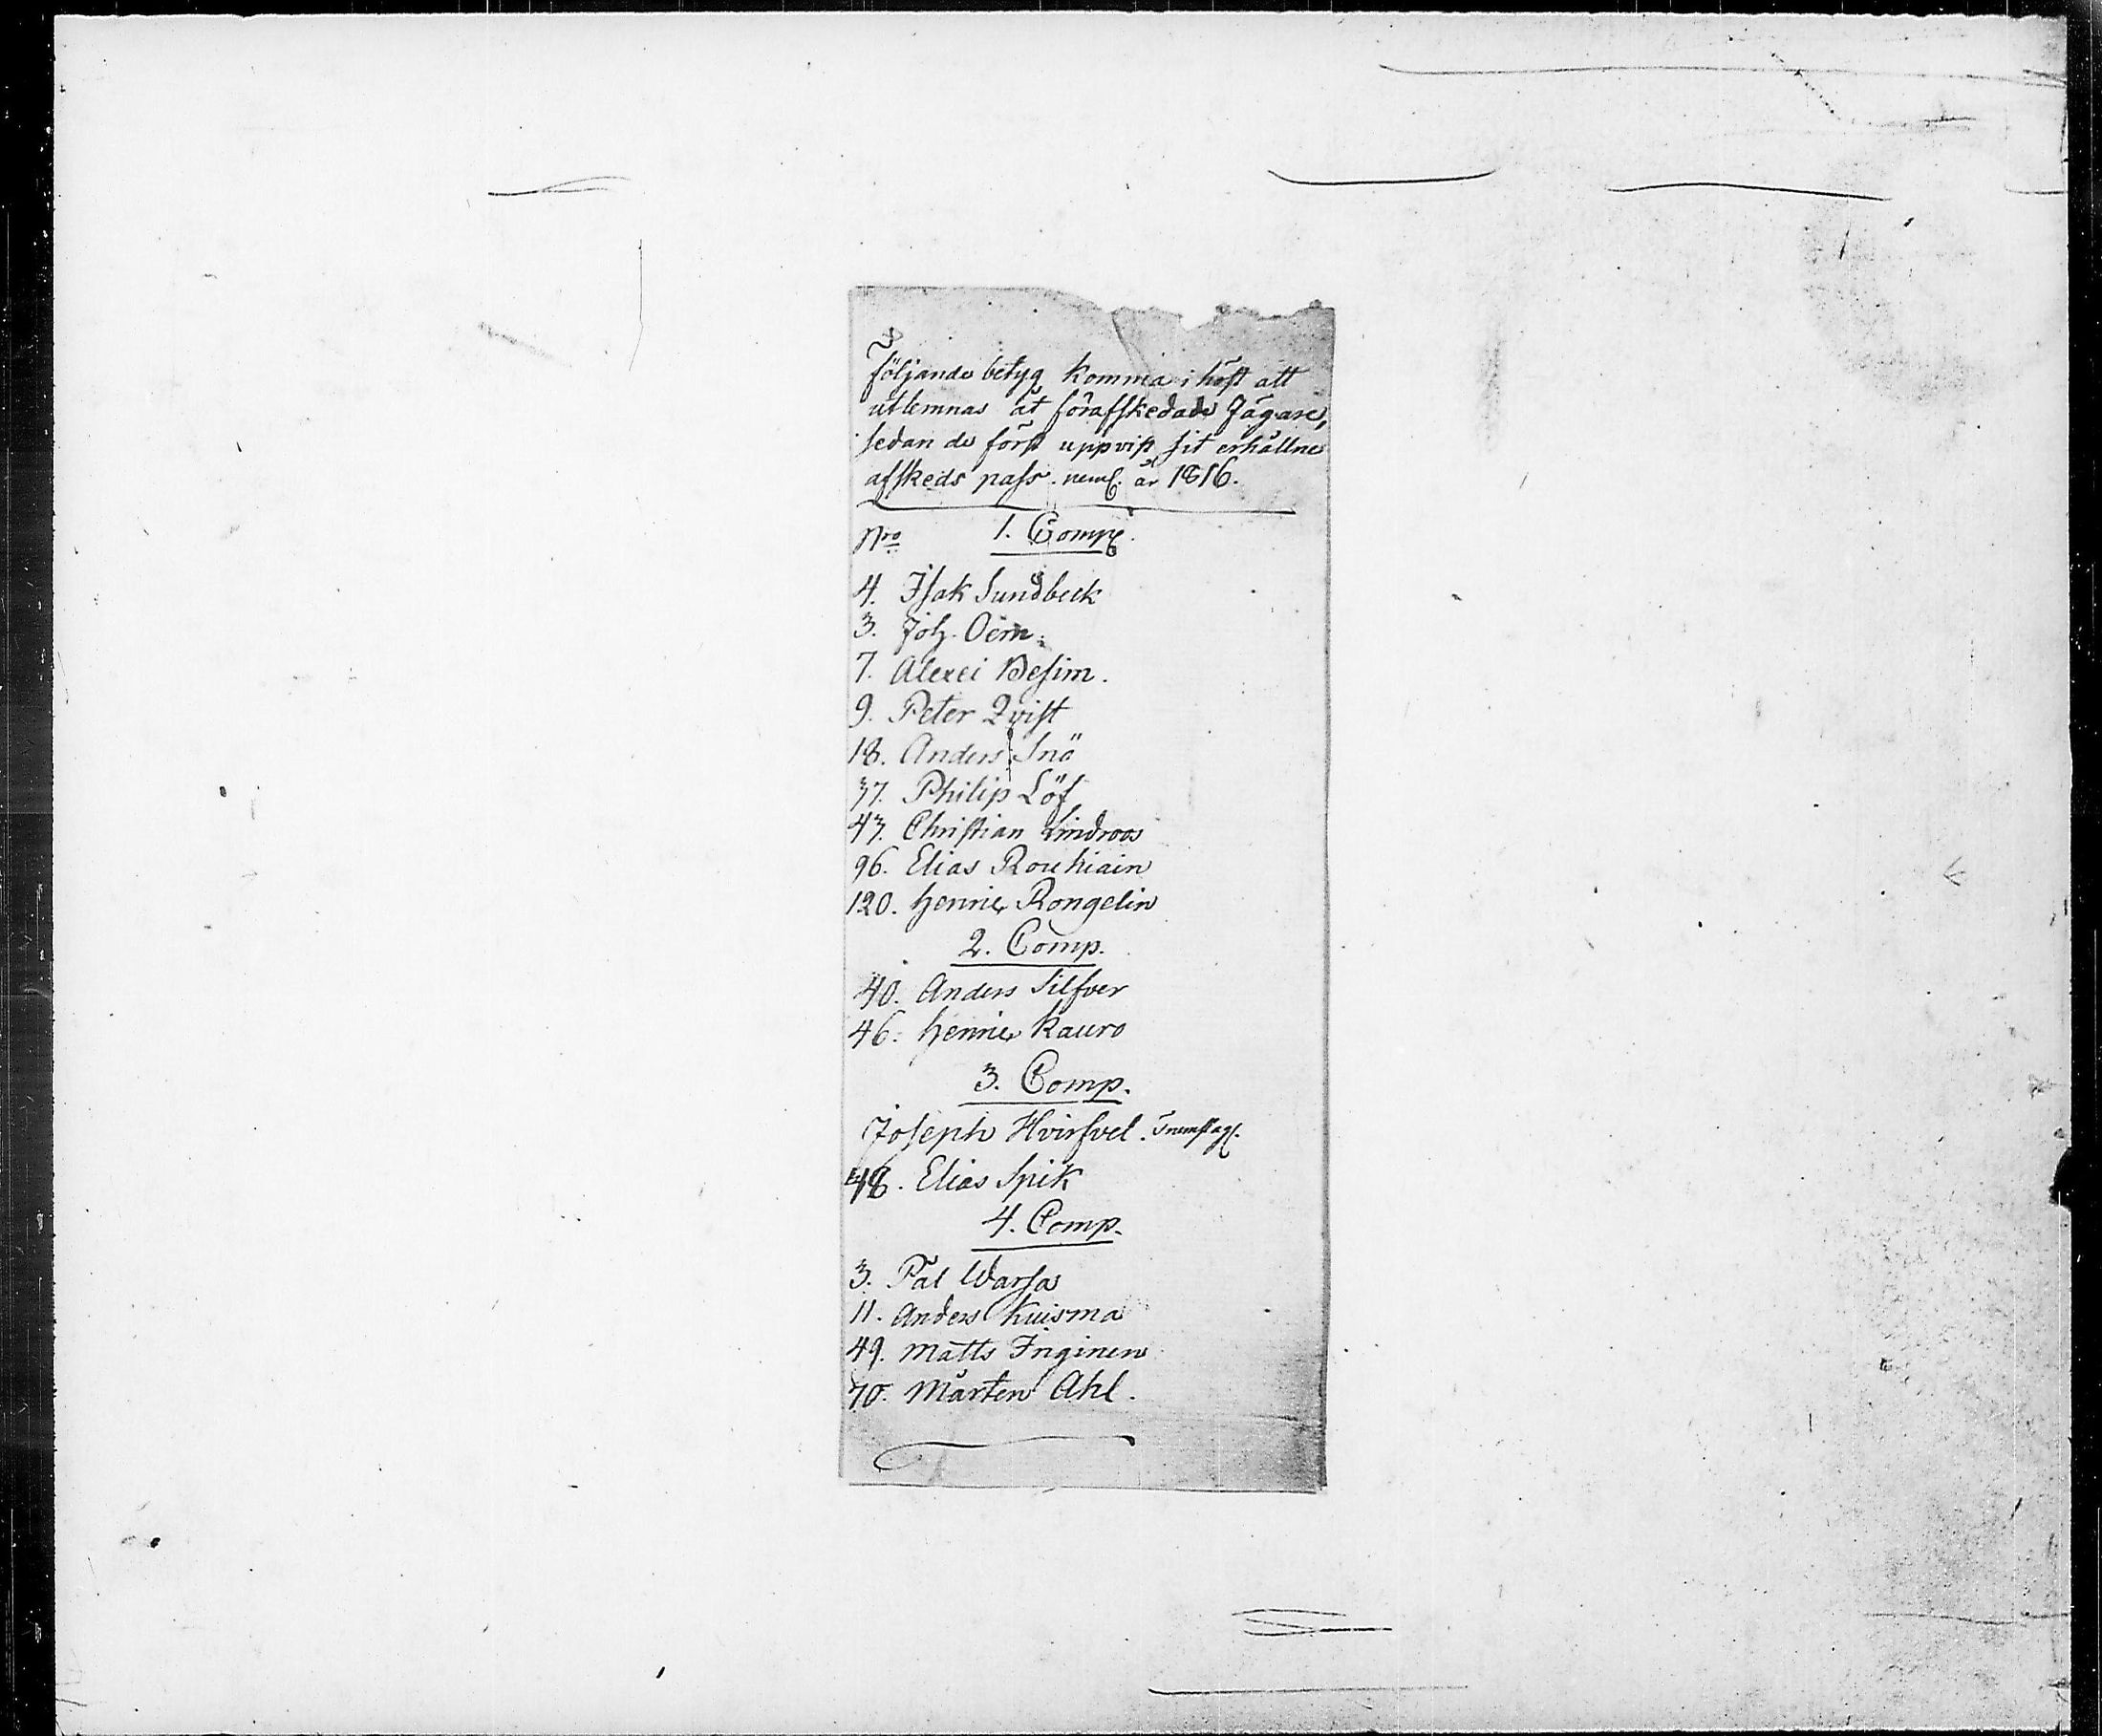 följande betyg komma i höst att
utlemnas åt förafskedade Jägare,
sedan de först uppvist sit erhållne
afskeds pass. neml. år 1816.
Nro 1. Comp.
4. Isak Sundbeck
3. Joh. Oem.
7. Alexei Besim.
9. Peter Qvist
18. Anders Snö
37. Philip Löf
47. Christian Lindroos
96. Elias Rouhiain
120. Henric Rongelin
2. Comp.
40. Anders Silfver
46. Henric Kauro
3. Comp.
Joseph Hvirfvel. Trumslag.
48. Elias Spik
4. Comp.
3. Pål Warsa
11. Anders Kuisma
49. Matts Inginen
70. Mårten Ahl.